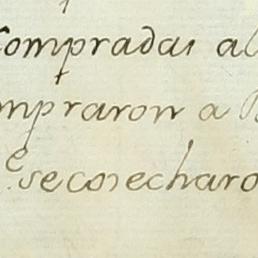 compradas al
mpraron a
e se cosecharo